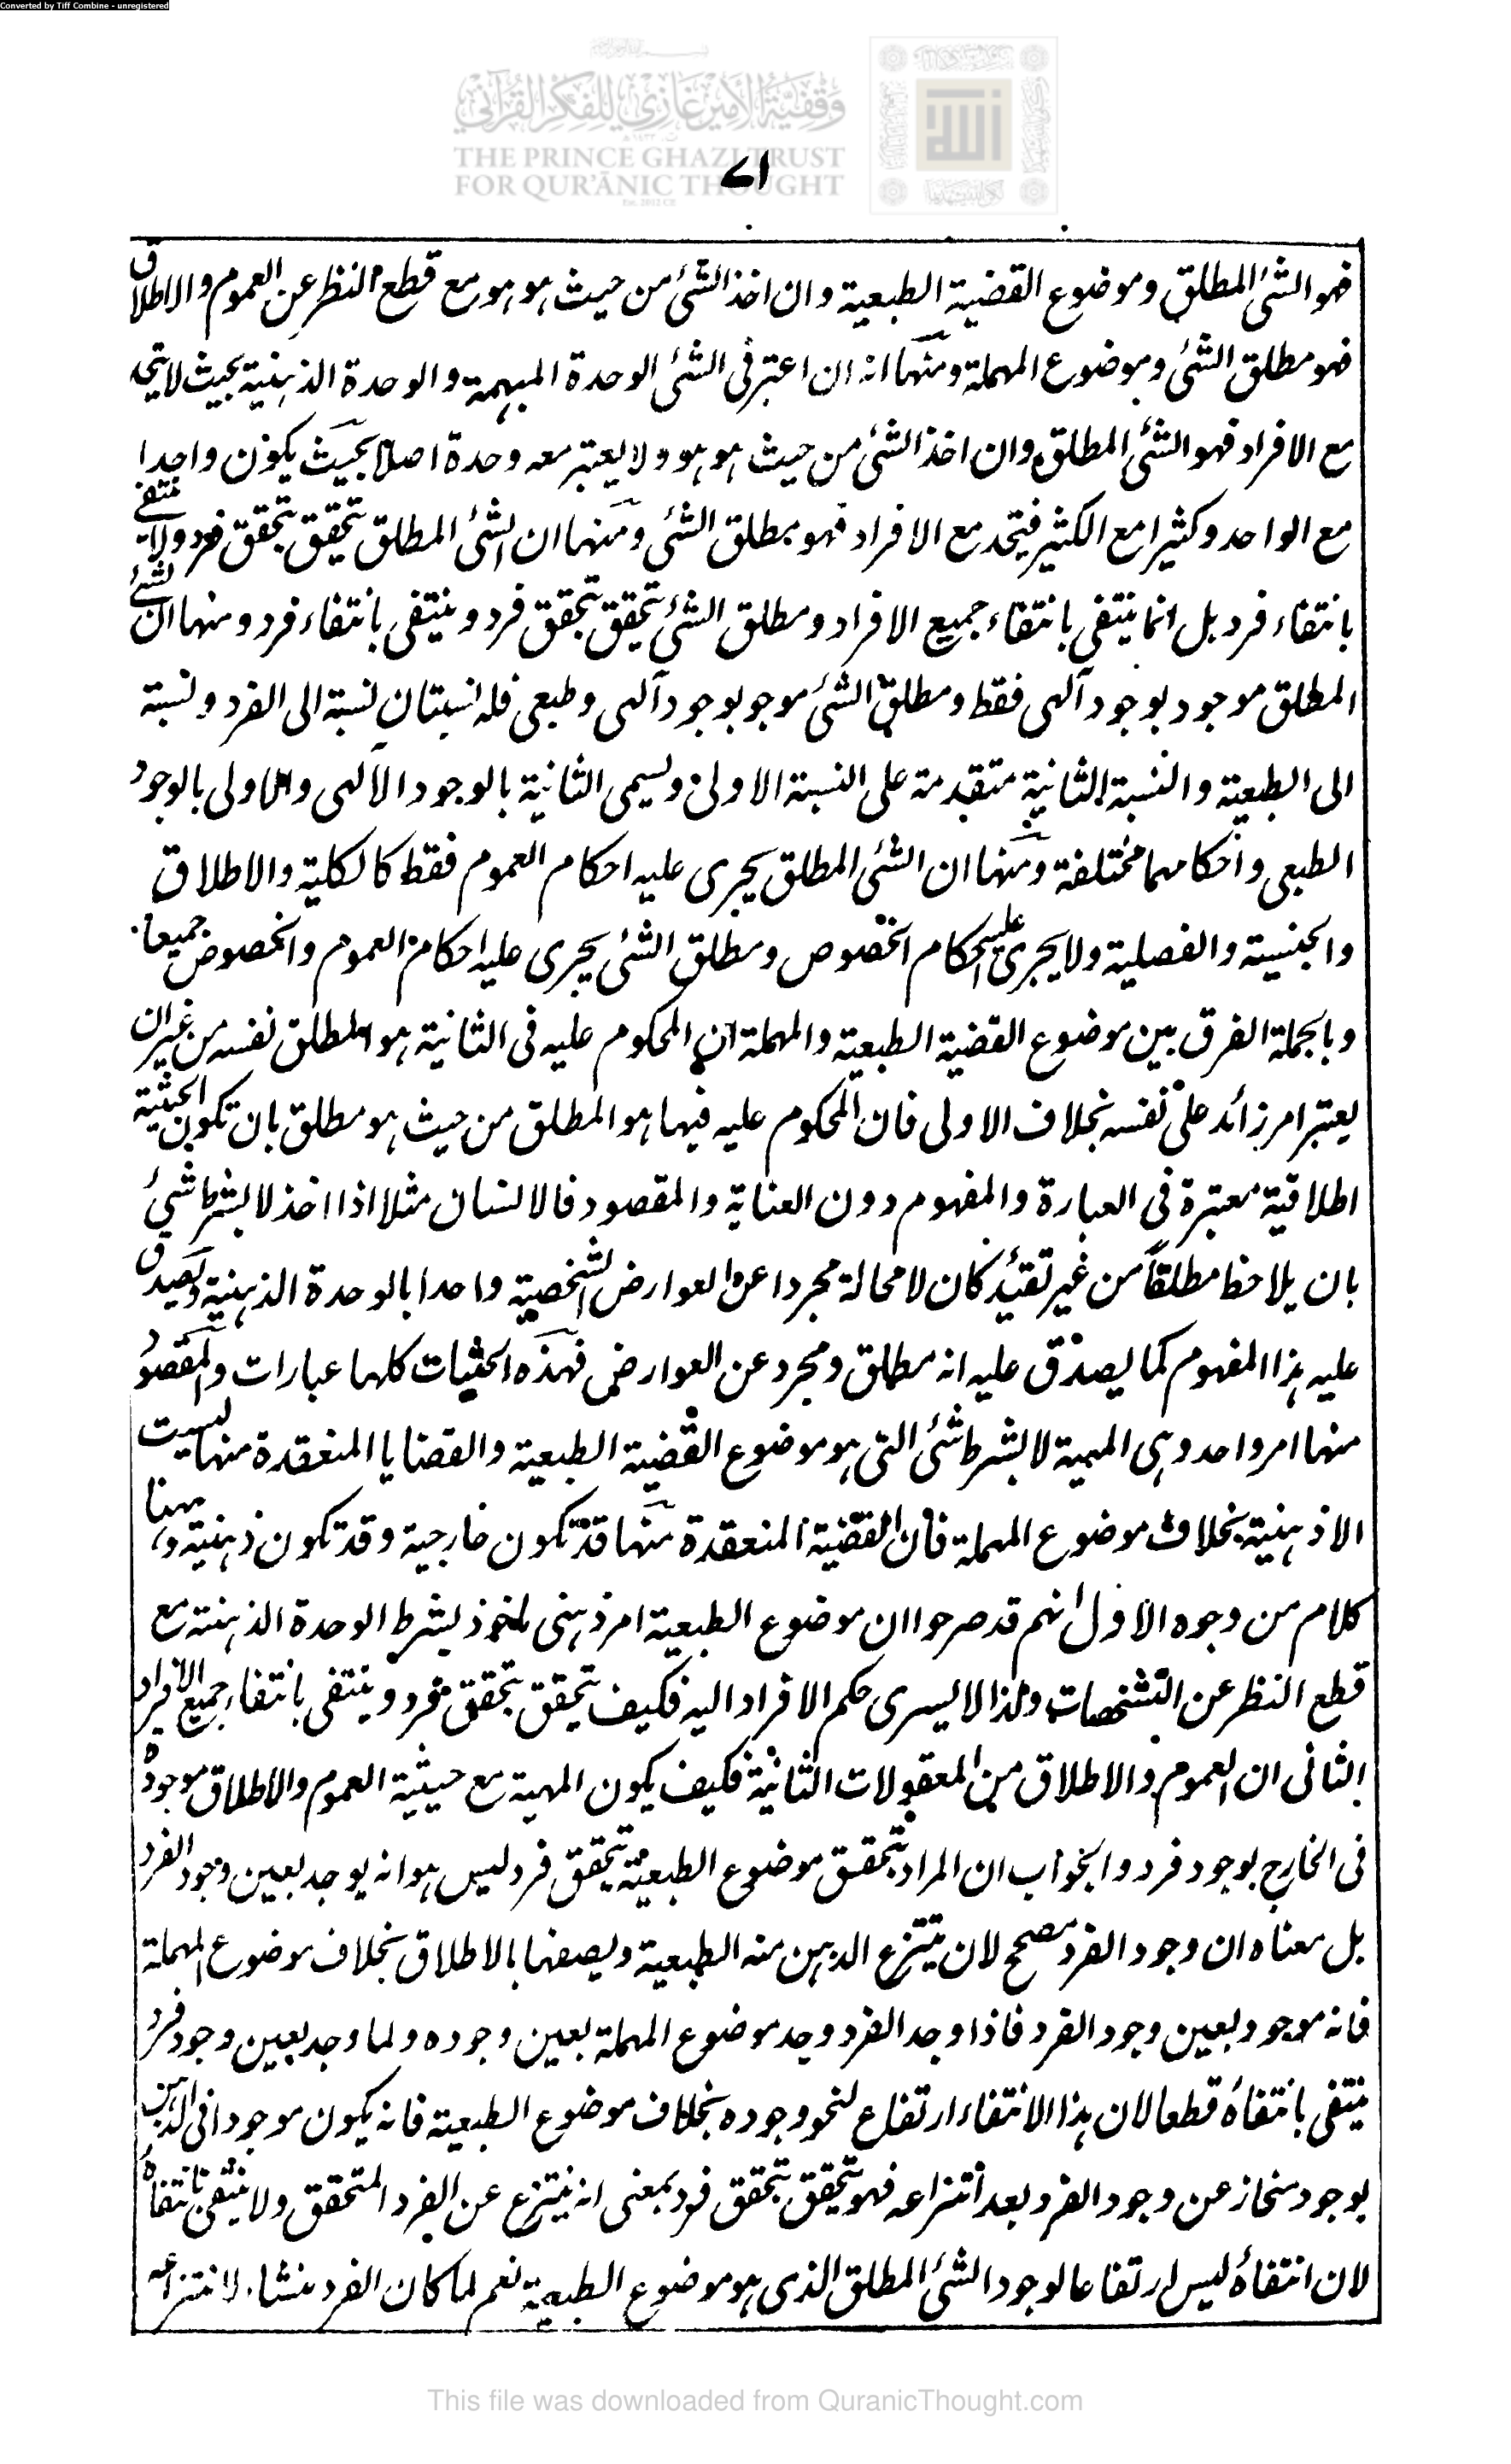 Converted by Tiff Combine - unregistered
وقفية الأمير غازي للفكر القرآني
THE PRINCE GHAZI TRUST
FOR QUR'ĀNIC THOUGHT
٧١
فهو الشئ المطلق وموضوع القضية الطبعية وان اخذ الشئ من حيث هو هو مع قطع النظر عن العموم والاطلاق
فهو مطلق الشئ وموضوع المهملة ومنها انه ان اعتبر فى الشئ الوحدة المبهمة والوحدة الذهنية بحيث لا يتحد
مع الافراد فهو الشئ المطلق وان اخذ الشئ من حيث هو هو ولا يعتبر معه وحدة اصلا بحيث يكون واحدا
مع الواحد وكثيرا مع الكثير فيتحد مع الافراد فهو مطلق الشئ ومنها ان الشئ المطلق يتحقق بتحقق فرد ولا ينتفى
بانتفاء فرد بل انما ينتفى بانتفاء جميع الافراد ومطلق الشئ يتحقق بتحقق فرد وينتفى بانتفاء فرد ومنها ان الشئ
المطلق موجود بوجود آلهى فقط ومطلق الشئ موجو بوجود آلهى وطبعى فله نسبتان نسبة الى الفرد ونسبة
الى الطبعية والنسبة الثانية متقدمة على النسبة الاولى ويسمى الثانية بالوجود الآلهى والاولى بالوجود
الطبعى واحكامهما مختلفة ومنها ان الشئ المطلق يجرى عليه احكام العموم فقط كالكلية والاطلاق
والجنسية والفصلية ولا يجرى عليه احكام الخصوص ومطلق الشئ يجرى عليه احكام العموم والخصوص جميعا
وبالجملة الفرق بين موضوع القضية الطبعية والمهملة ان المحكوم عليه فى الثانية هو المطلق نفسه من غير ان
يعتبر امر زائد على نفسه بخلاف الاولى فان المحكوم عليه فيها هو المطلق من حيث هو مطلق بان تكون الحيثية
اطلاقية معتبرة فى العبارة والمفهوم دون العناية والمقصود فالانسان مثلا اذا اخذ لا بشرط شئ
بان يلاحظ مطلقاً من غير تقئيد كان لا محالة مجردا عن العوارض الشخصية واحدا بالوحدة الذهنية ويصدق
عليه هذا المفهوم كما يصدق عليه انه مطلق ومجرد عن العوارض فهذه الحيثيات كلها عبارات والمقصود
منها امر واحد وهى المهية لا بشرط شئ التى هو موضوع القضية الطبعية والقضايا المنعقدة منها ليست
الا ذهنية بخلاف موضوع المهملة فان القضية المنعقدة منها قد تكون خارجية وقد تكون ذهنية وههنا
كلام من وجوه الاول انهم قد صرحوا ان موضوع الطبعية امر ذهنى ماخوذ بشرط الوحدة الذهنية مع
قطع النظر عن التشخصات ولذا لا يسرى حكم الافراد اليه فكيف يتحقق بتحقق فرد وينتفى بانتفاء جميع الافراد
الثانى ان العموم والاطلاق من المعقولات الثانية فكيف يكون المهية مع حيثية العموم والاطلاق موجودة
فى الخارج بوجود فرد والجواب ان المراد بتحقق موضوع الطبعية بتحقق فرد ليس هو انه يوجد بعين وجود الفرد
بل معناه ان وجود الفرد مصحح لان ينتزع الذهن منه الطبعية ويصفها بالاطلاق بخلاف موضوع المهملة
فانه موجود بعين وجود الفرد فاذا وجد الفرد وجد موضوع المهملة بعين وجوده ولما وجد بعين وجود فرد
ينتفى بانتفائه قطعا لان هذا الانتفاء ارتفاع لنحو وجوده بخلاف موضوع الطبعية فانه يكون موجودا فى الذهن
بوجود منحاز عن وجود الفرد بعد انتزاعه فهو يتحقق بتحقق فرد بمعنى انه ينتزع عن الفرد المتحقق ولا ينتفى بانتفائه
لان انتفاؤه ليس ارتفاعا لوجود الشئ المطلق الذى هو موضوع الطبعية نعم لما كان الفرد منشاء لانتزاعه
This file was downloaded from QuranicThought.com